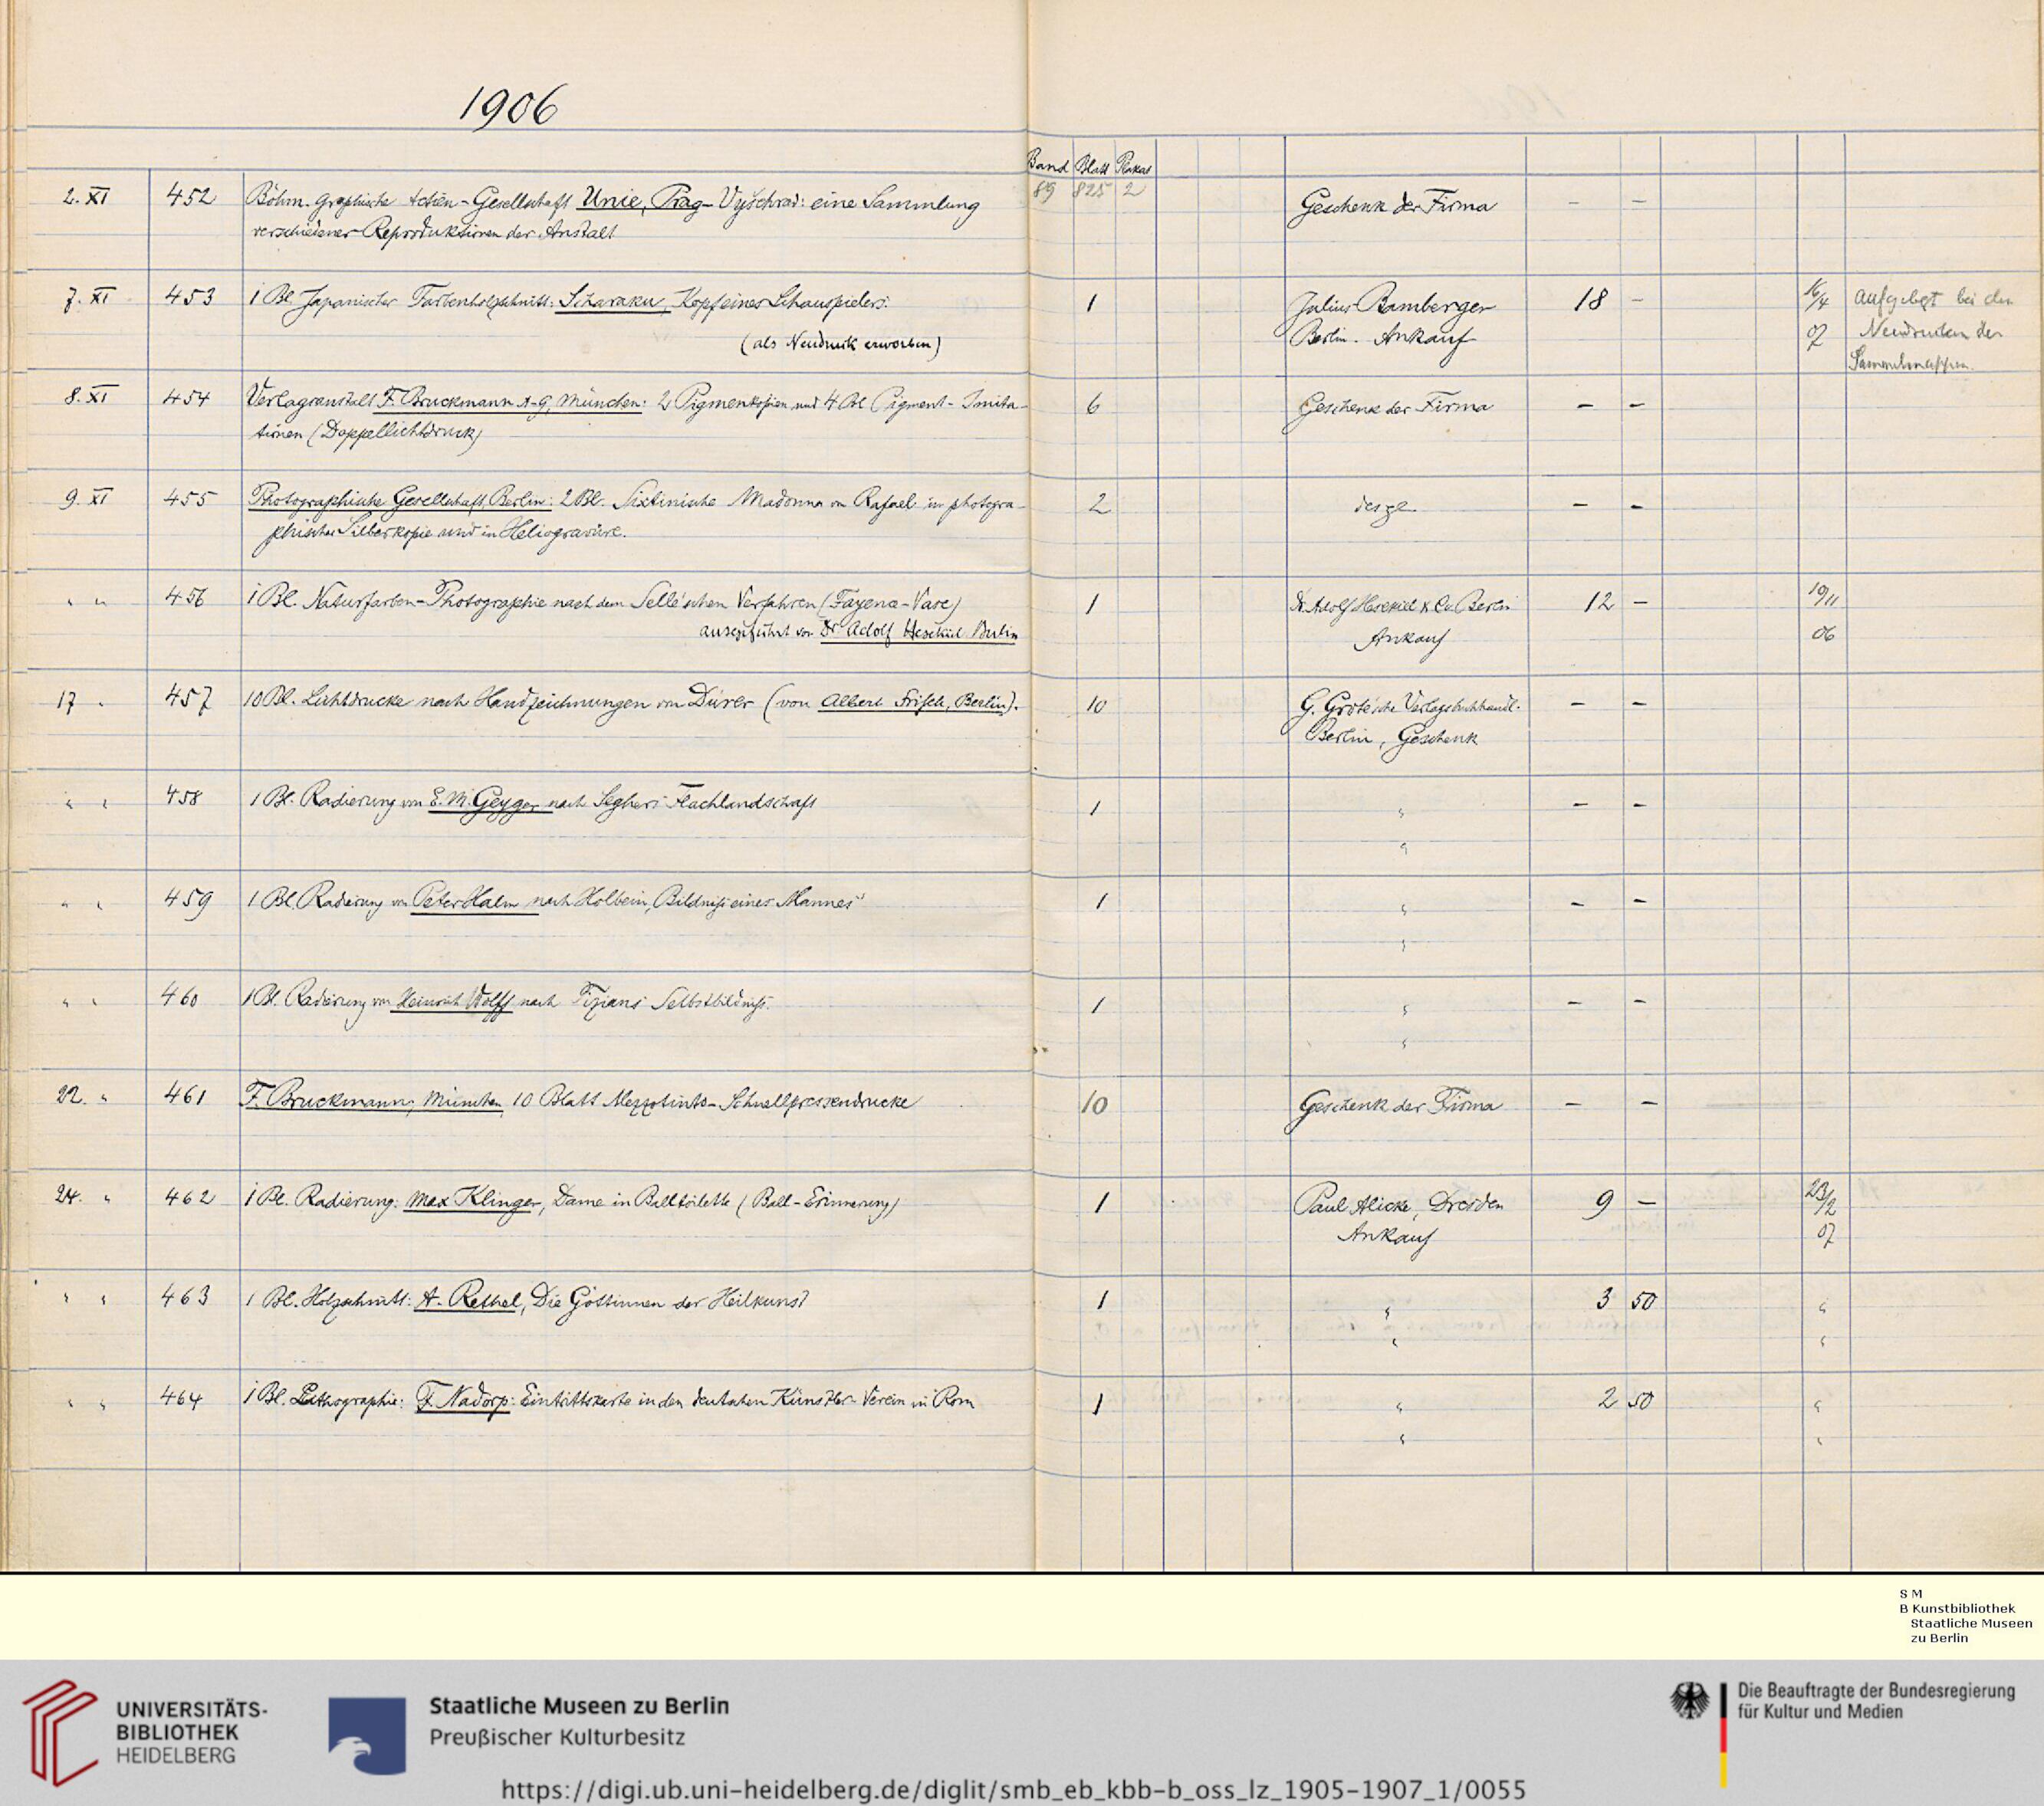 1906
Band Blatt Plakat
89 825 2
2. XI 452 Böhm. graphische Actien-Gesellschaft Unie, Prag-Vyšehrad: eine Sammlung Geschenk der Firma – –
verschiedener Reproduktionen der Anstalt
7. XI 453 1 Bl. Japanischer Farbenholzschnitt: Scharaku, Kopf eines Schauspielers. 1 Julius Bamberger 18 – 16/4 Aufgelegt bei den
(als Neudruck erworben) Berlin. Ankauf 07 Neudrucken der
Sammelmappen.
8. XI 454 Verlagsanstalt F. Bruckmann A-G, München: 2 Pigmentkopien und 4 Bl. Pigment-Imita- 6 Geschenk der Firma – –
tionen (Doppellichtdruck)
9. XI 455 Photographische Gesellschaft, Berlin: 2 Bl. Sixtinische Madonna von Rafael in photogra- 2 desgl. – –
phischer Silberkopie und in Heliogravüre.
" " 456 1 Bl. Naturfarben-Photographie nach dem Selle'schen Verfahren (Fayence-Vase) 1 Dr. Adolf Hesekiel & Co. Berlin 12 – 19/11
ausgeführt von Dr. Adolf Hesekiel Berlin Ankauf 06
17 " 457 10 Bl. Lichtdrucke nach Handzeichnungen von Dürer (von Albert Frisch, Berlin). 10 G. Grote'sche Verlagsbuchhandl. – –
Berlin, Geschenk
" " 458 1 Bl. Radierung von E. M. Geyger nach Seghers Flachlandschaft 1 " – –
"
" " 459 1 Bl. Radierung von Peter Halm nach Holbein, Bildniß eines Mannes" 1 " – –
"
" " 460 1 Bl. Radierung von Heinrich Wolff nach Tizians Selbstbildniß. 1 " – –
"
22. " 461 F. Bruckmann, München, 10 Blatt Mezzotinto-Schnellpressendrucke 10 Geschenk der Firma – –
24. " 462 1 Bl. Radierung: Max Klinger, Dame in Balltoilette (Ball-Erinnerung) 1 Paul Alicke, Dresden 9 – 23/2
Ankauf 07
" " 463 1 Bl. Holzschnitt: A. Rethel, Die Göttinnen der Heilkunst 1 " 3 50 "
" "
" " 464 1 Bl. Lithographie: F. Nadorp: Eintrittskarte in den deutschen Künstler-Verein in Rom 1 " 2 50 "
" "
S M
B Kunstbibliothek
Staatliche Museen
zu Berlin
UNIVERSITÄTS-
BIBLIOTHEK
HEIDELBERG
Staatliche Museen zu Berlin
Preußischer Kulturbesitz
Die Beauftragte der Bundesregierung
für Kultur und Medien
https://digi.ub.uni-heidelberg.de/diglit/smb_eb_kbb-b_oss_lz_1905-1907_1/0055